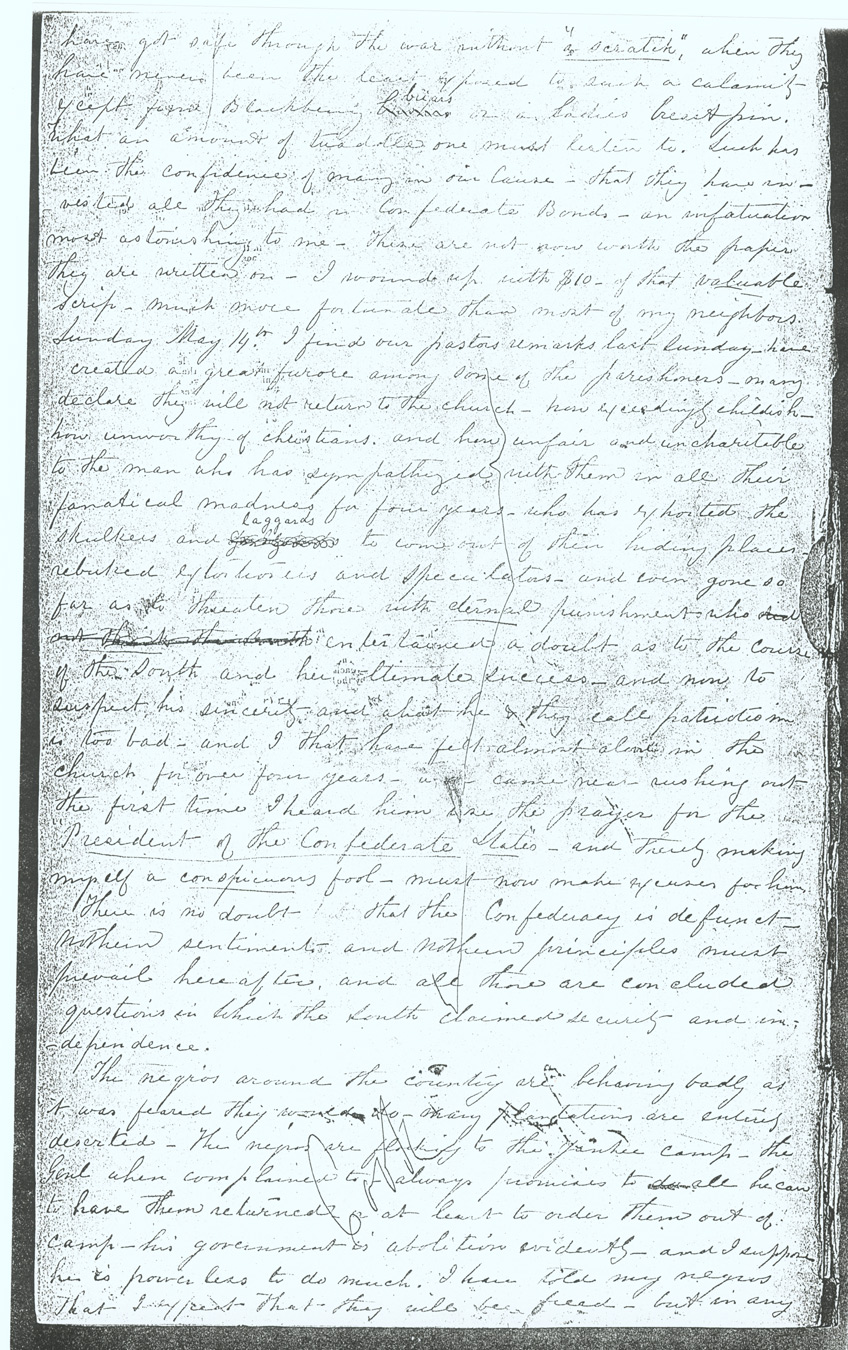 have got safe through the war without "a scratch", when they
have never been the least exposed to such a calamity
except from Blackberry briars or a ladies breast pin.
What an amount of twaddle one must listen to. Such has
been the confidence of many in our Cause - that they have in-
vested all they had in Confederate Bonds - an infatuation
most astonishing to me - These are not now worth the paper
they are written on - I wound up with $10 - of that valuable
scrip - much more fortunate than most of my neighbors
Sunday May 14th I find our pastors remarks last Sunday - have
created a great furore among some of the parishoners - many
declare they will not return to the church - how exceedingly childish -
how unworthy of christians. and how unfair and uncharitable
to the man who has sympathized with them in all their
fanatical madness for four years - who has exhorted the
skulkers and laggards to come out of their hiding places -
rebuked extortioners and speculators - and even gone so
far as to threaten those with eternal punishment who
entertained a doubt as to the course
of the South and her ultimate success - and now to
suspect his sincerity and what he & they call patriotism
is too bad - and I that have felt almost alone in the
church for over four years - came near rushing out
the first time I heard him use the prayer for the
"President of the Confederate States - and thereby making
myself a conspicuous fool - must now make excuses for him.
There is no doubt that the Confederacy is defunct -
Nothern sentiments and Nothern principles must
prevail hereafter, and all those are concluded
questions in which the South claimed security and in-
-dependence.
The negros around the country are behaving badly as
it was feared they would do - Many plantations are entirely
deserted - The negros are flocking to the Yankee camp - the
Genl when complained to always promises to do all he can
to have them returned or at least to order them out of
camp - his government is abolition evidently - and I suppose
he is powerless to do much. I have told my negros
that I expect that they will be freed - but in any